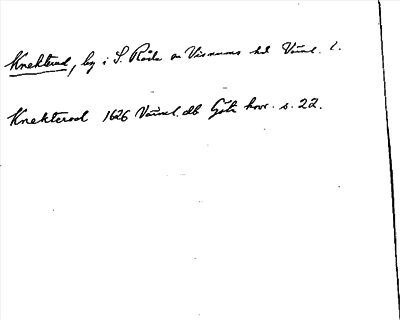 Knekterud, by i S. Råda sn Visnums hd Värml. l.
Knekterod 1626 Värml. db Göta hovr. s. 22.